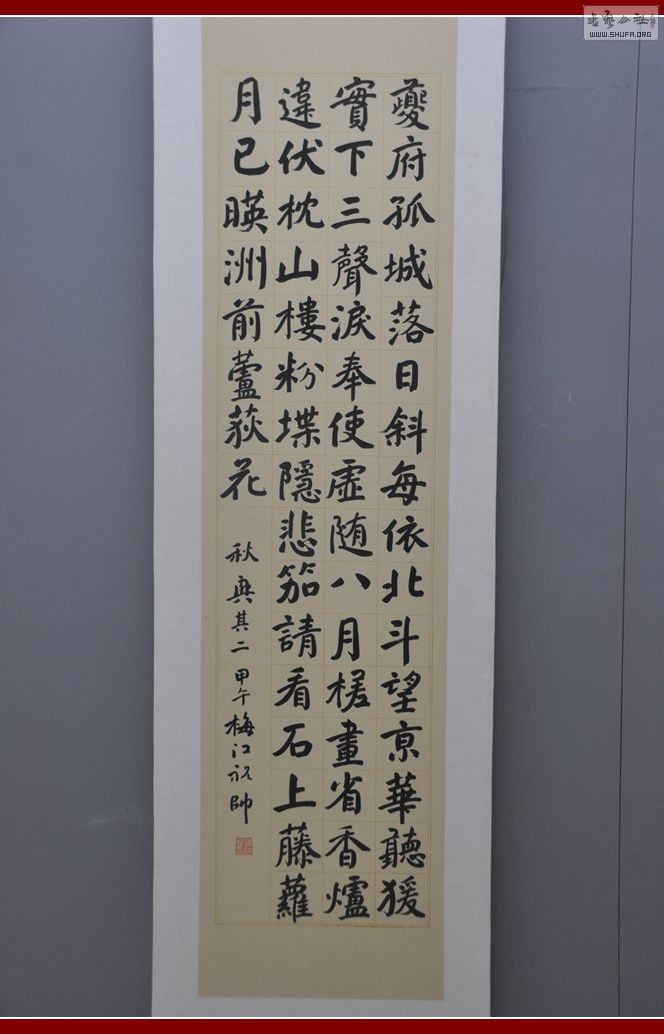 夔府孤城落日斜每依北斗望京華聽猨
實下三聲淚奉使虛随八月槎畫省香爐
違伏枕山樓粉堞隱悲笳請看石上藤蘿
月已暎洲前蘆荻花
秋興其二 甲午梅江祝帥
書藝公社
WWW.SHUFA.ORG